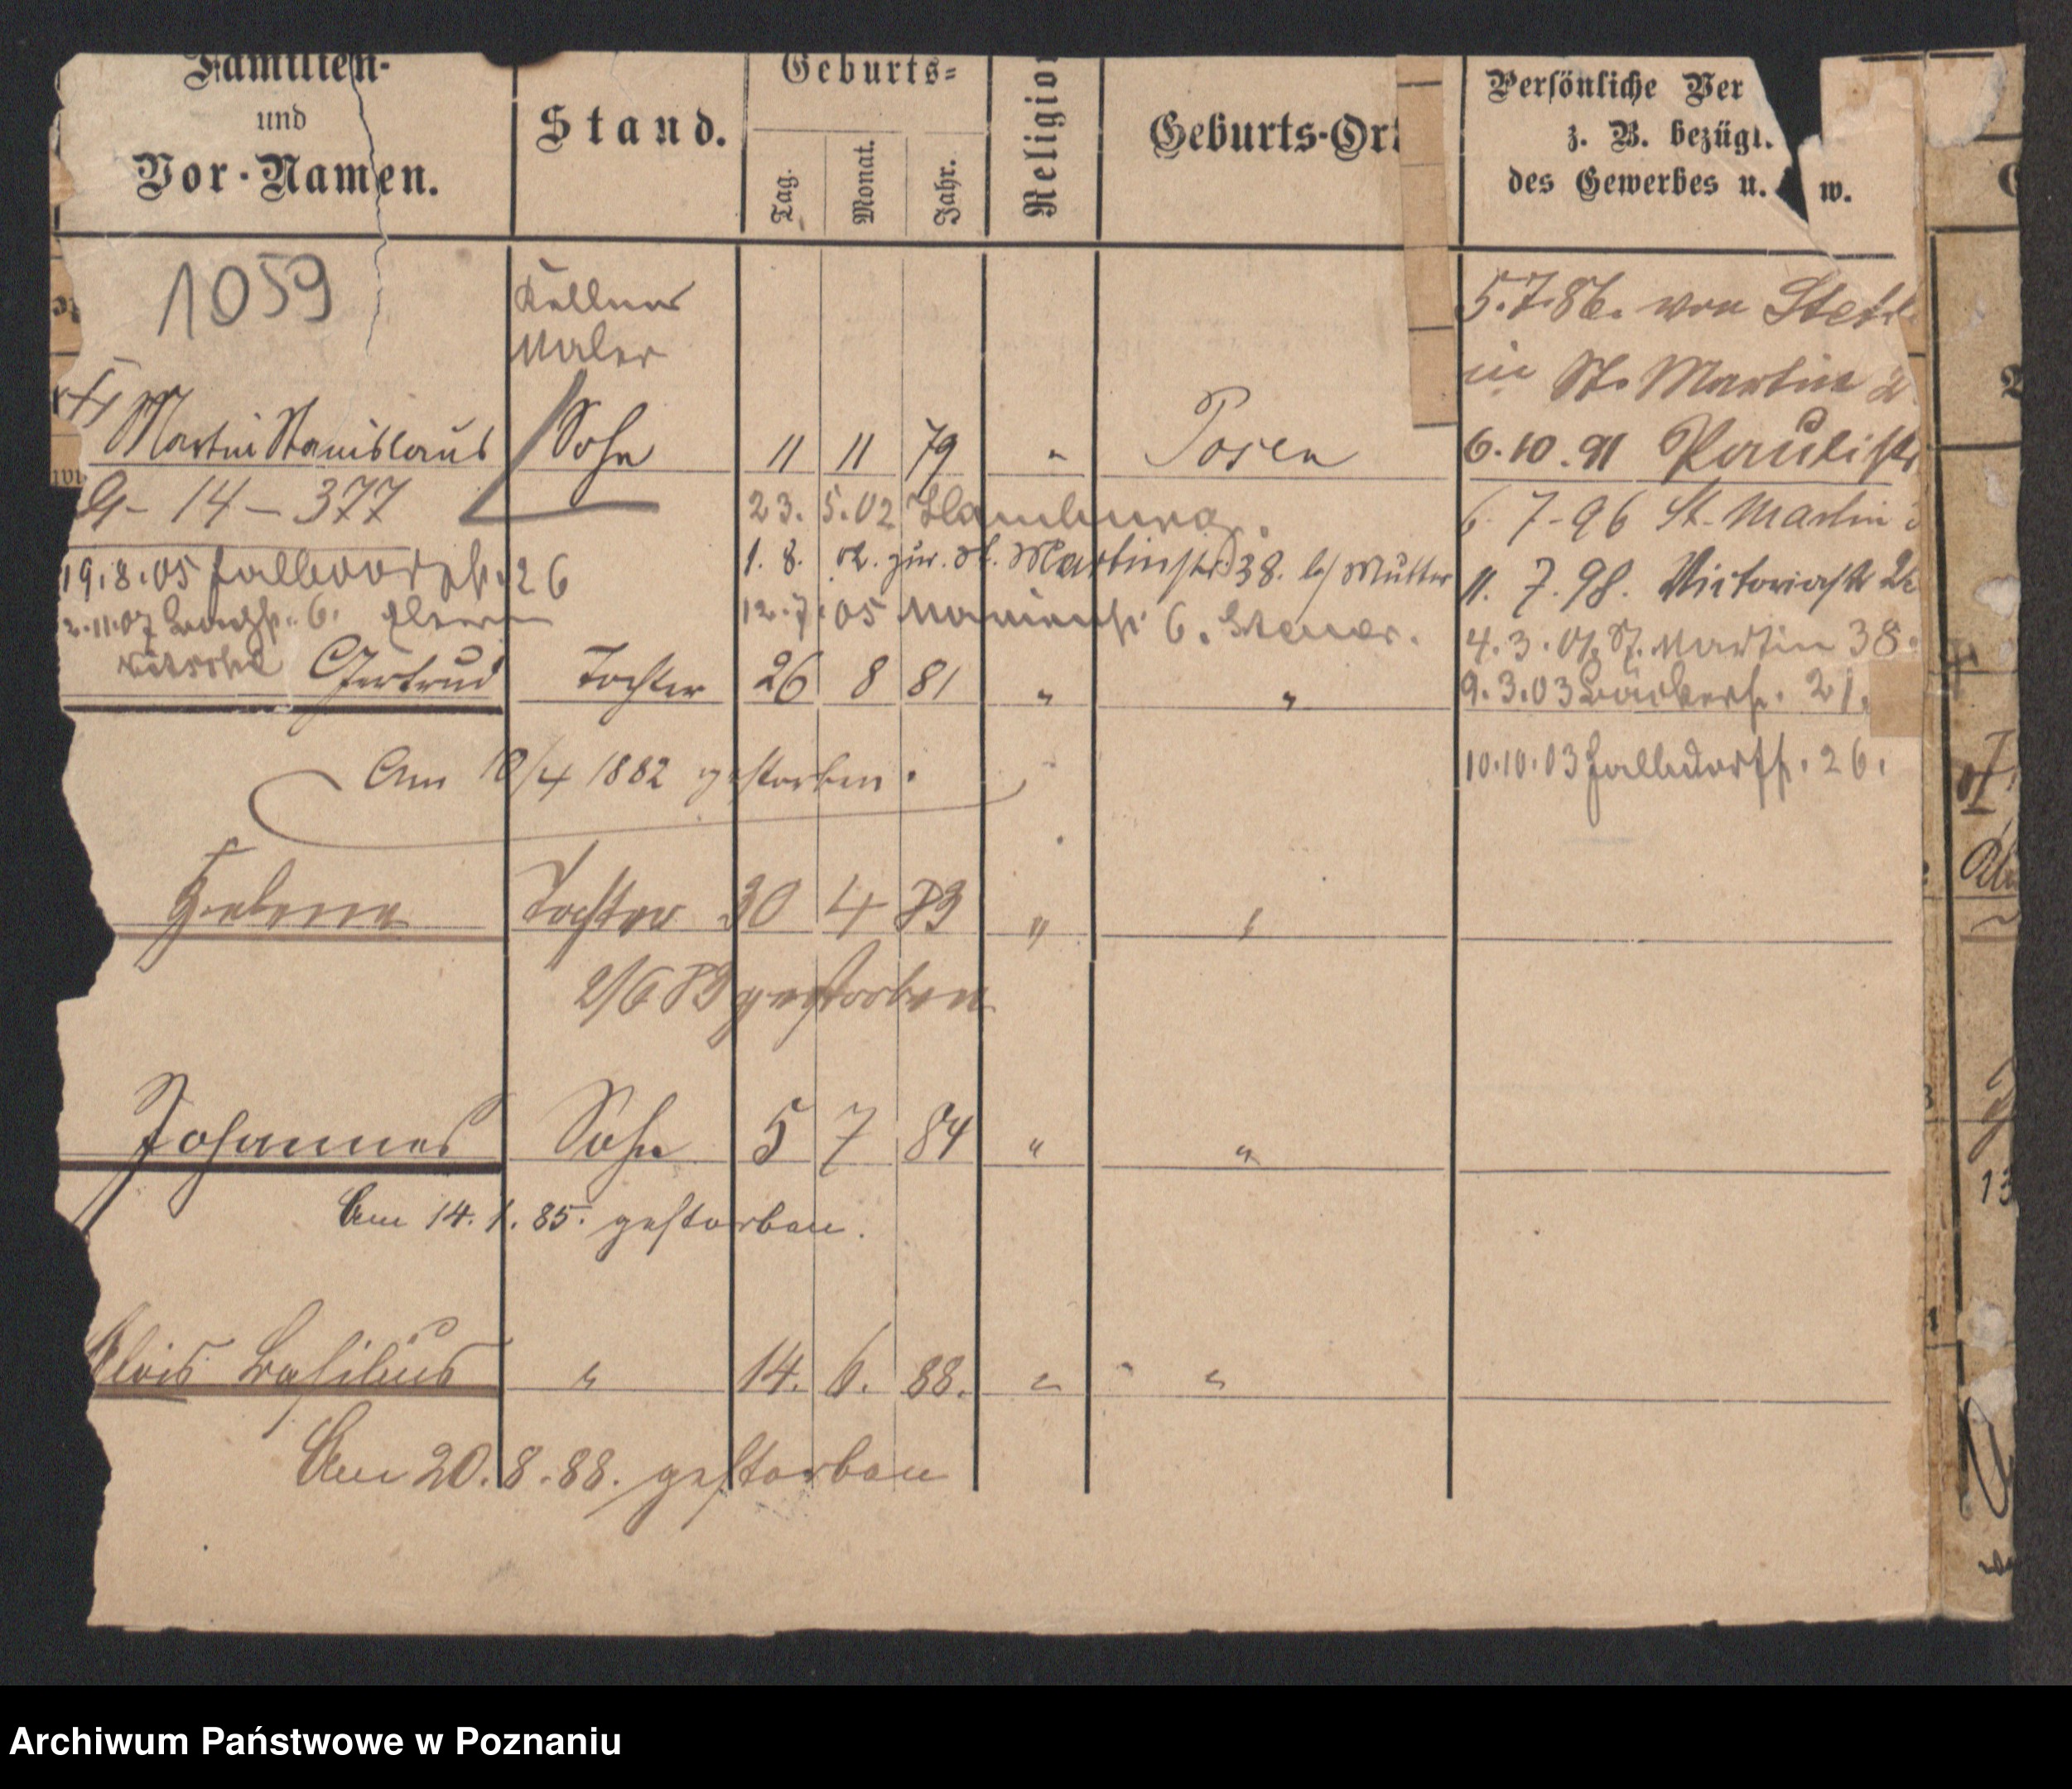 Familien-
und
Vor-Namen.
Stand.
Geburts-
Tag.
Monat.
Jahr.
Religion
Geburts-Ort
Persönliche Ver
z. B. bezügl.
des Gewerbes u. w.
1059
Kellner
Maler
5.7.86. von
in St. Martin
Martin Stanislaus Sohn 11 11 79 " Posen
6.10.91 Paulistr
G - 14 - 377
23. 5.02 Hamburg.
6. 7-96 St. Martin
19.8.05 Halbdorfstr. 26
1. 8. 02. zur. St. Martinstr. 38. b/ Mutter
11. 7.98. Victoriastr
2.11.07 6.
12.7.05 6.
4.3.01. St. Martin 38.
Gertrud Tochter 26 8 81 " "
9.3.03 Bäckerstr. 21.
Am 10/4 1882 gestorben.
10.10.03 Halbdorfstr. 26.
Helene Tochter 30 4 83 " "
2/6 83 gestorben
Johannes Sohn 5 7 84 " "
Am 14.1.85. gestorben.
Alois Basilius " 14. 6. 88. " "
Am 20.8.88. gestorben
13
Archiwum Państwowe w Poznaniu